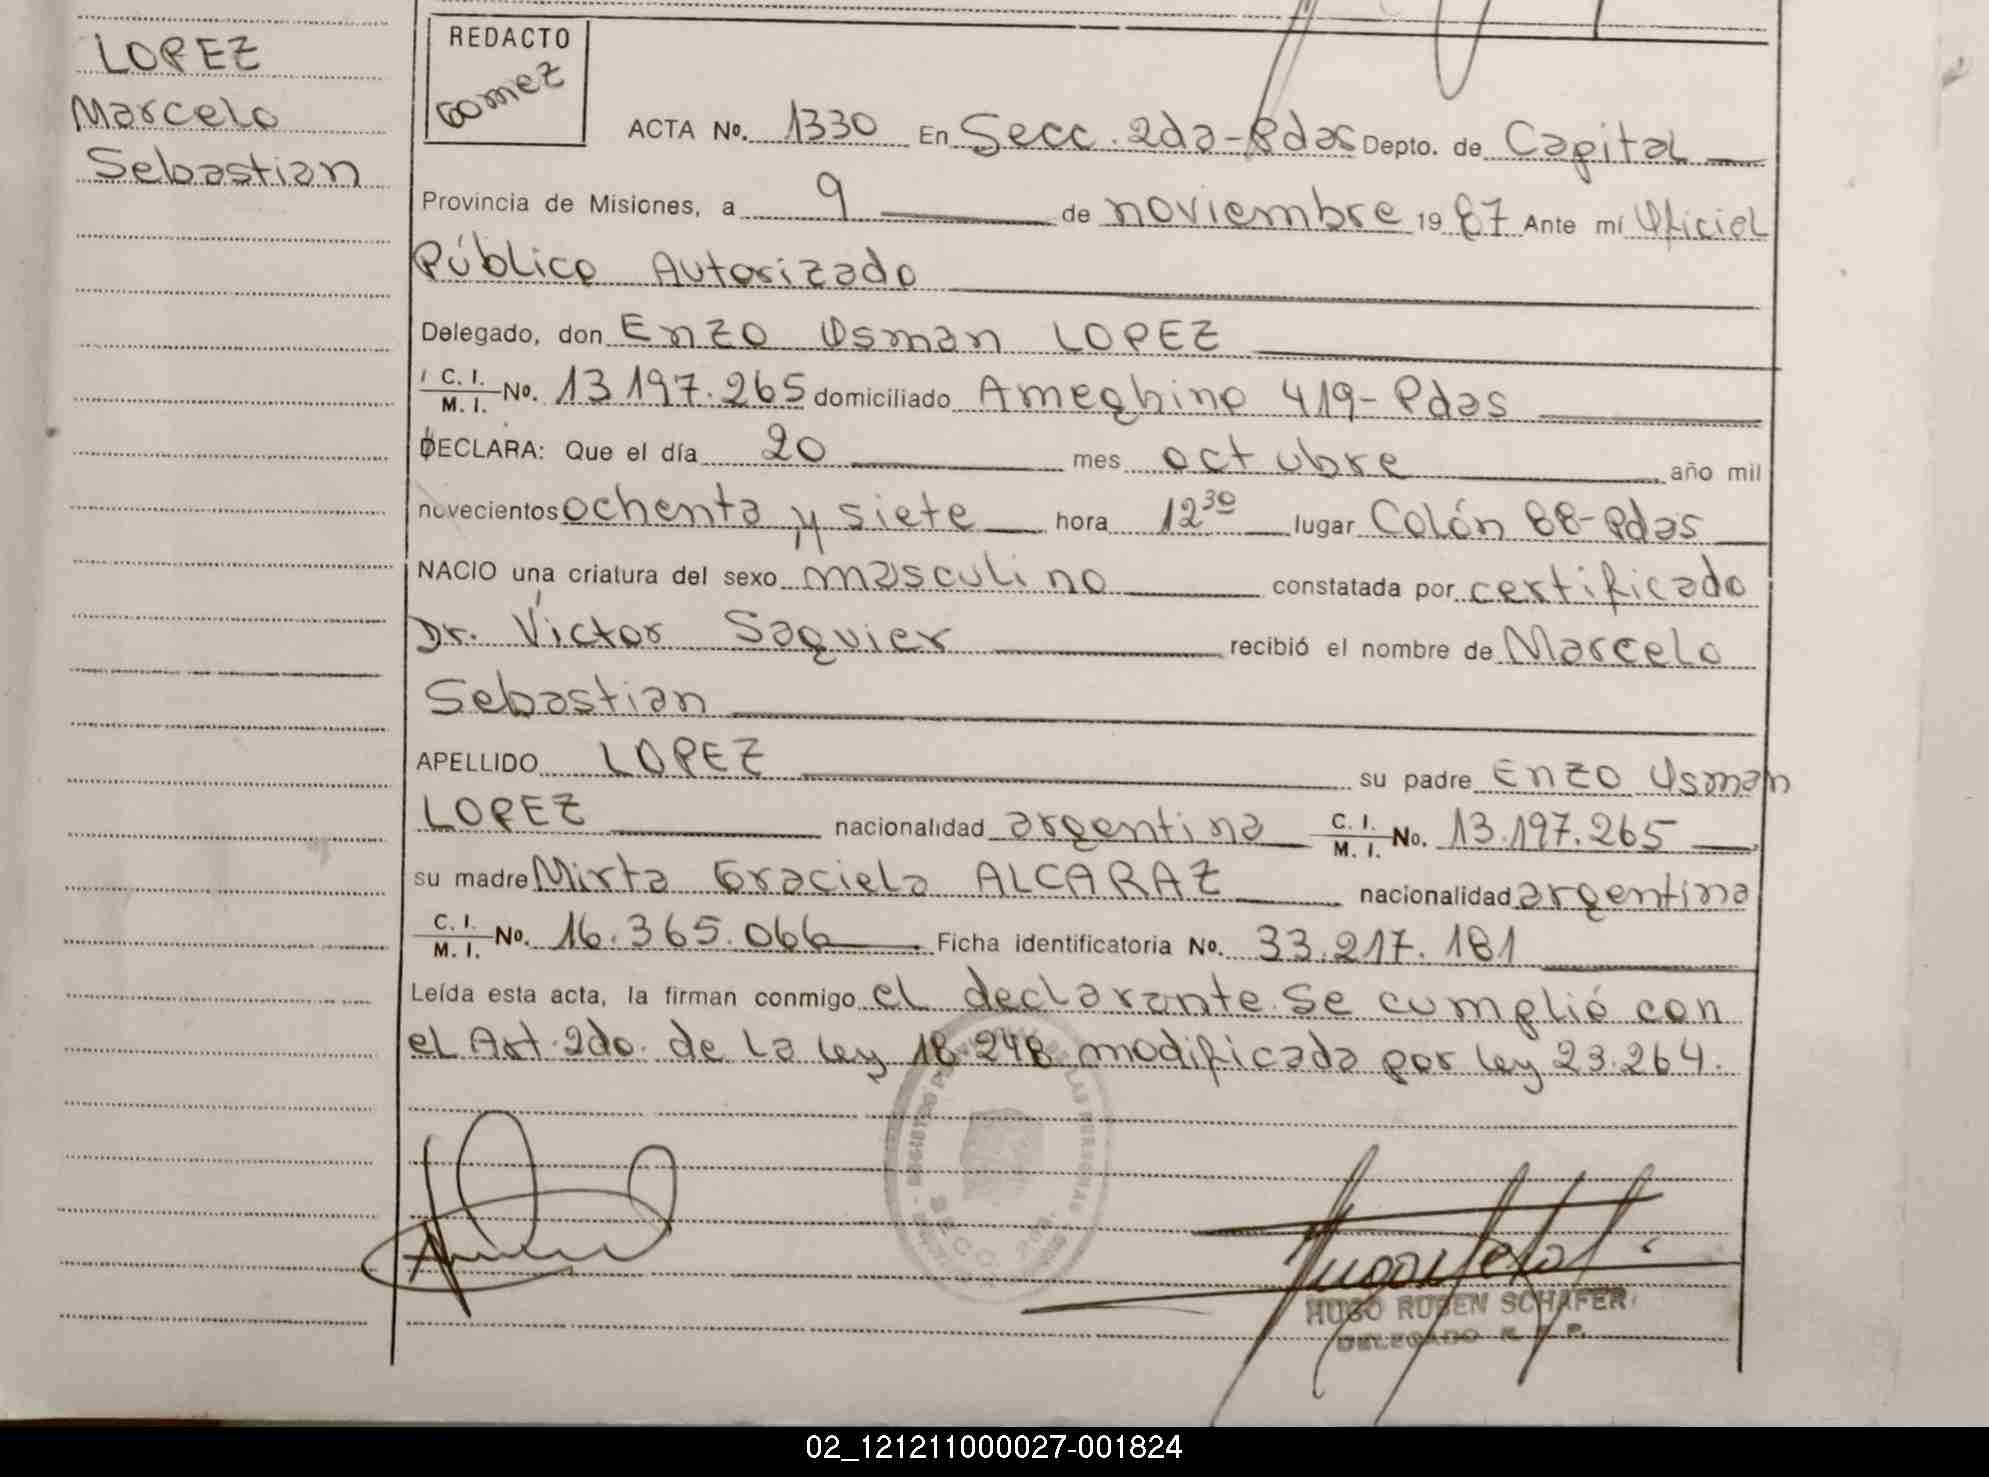 LOPEZ
Marcelo
Sebastian
REDACTO
Gomez
ACTA No. 1330 En Secc. 2da-Pdas Depto. de Capital
Provincia de Misiones, a 9 de noviembre 1987 Ante mí Oficial
Público Autorizado
Delegado, don Enzo Osman LOPEZ
C. I.
M. I. No. 13197.265 domiciliado Ameghino 419- Pdas
DECLARA: Que el día 20 mes octubre año mil
novecientos ochenta y siete hora 12 30 lugar Colón 88-Pdas
NACIO una criatura del sexo masculino constatada por certificado
Dr. Víctor Saguier recibió el nombre de Marcelo
Sebastian
APELLIDO LOPEZ su padre Enzo Osman
LOPEZ nacionalidad argentina C. I. M. I. No. 13.197.265
su madre Mirta Graciela ALCARAZ nacionalidad argentina
C. I. M. I. No. 16.365.066 Ficha identificatoria No. 33.217.181
Leída esta acta, la firman conmigo el declarante. Se cumplió con
el Art. 2do. de la ley 18.248 modificada por ley 23.264.
HUGO RUBEN SCHAFER
DELEGADO R. P.
02_121211000027-001824